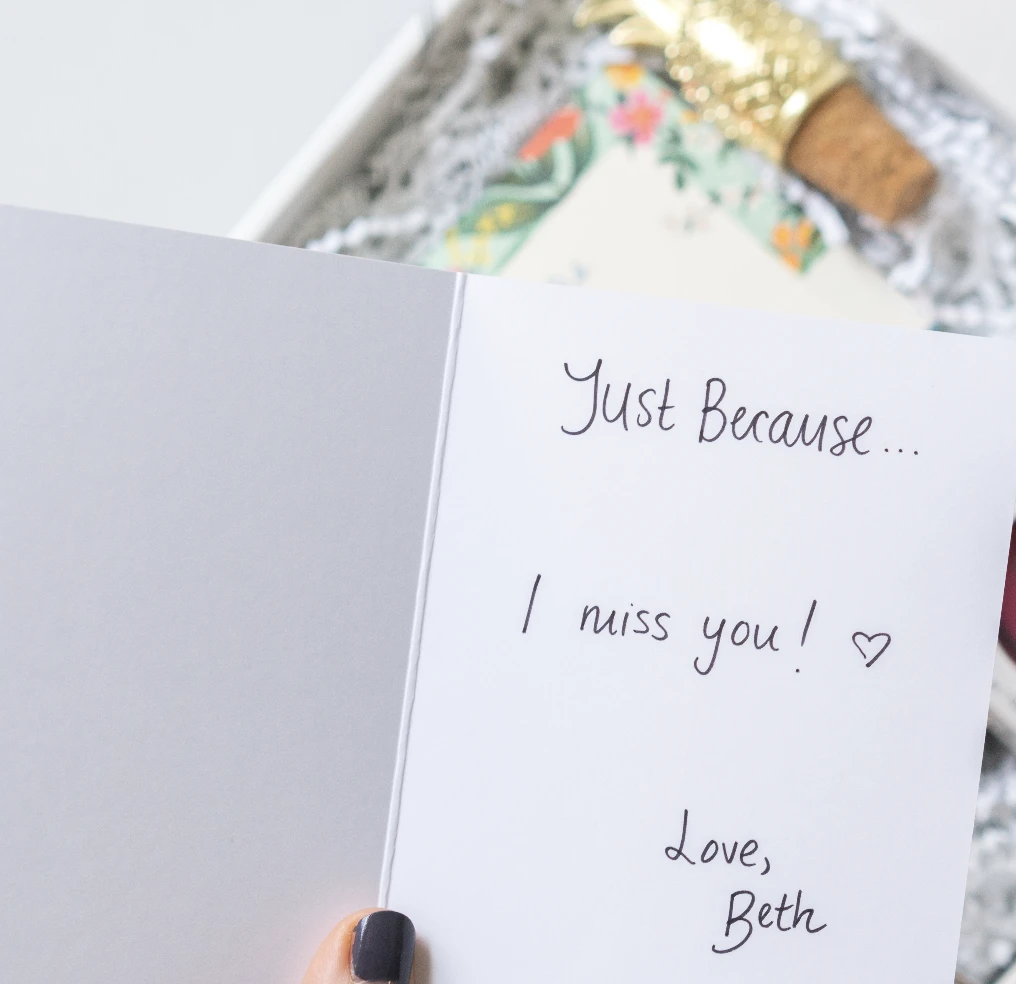 Just Because...
I miss you! ♡
Love,
Beth